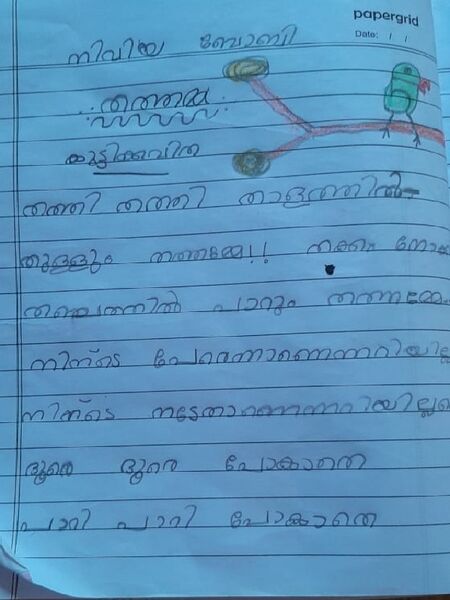 papergrid
Date: / /
നിവിയ ബോബി
തത്തമ്മ
കുട്ടിക്കവിത
തത്തി തത്തി താളത്തിൽ
തുള്ളും തത്തമ്മേ!! തക്കം നോക
തഞ്ചത്തിൽ പാറും തത്തമ്മേ
നിന്റെ പേരെന്താണെന്നറിയില്ല
നിന്റെ നാടേതാണെന്നറിയില്ല
ദൂരെ ദൂരെ പോകാതെ
പാറി പാറി പോകാതെ